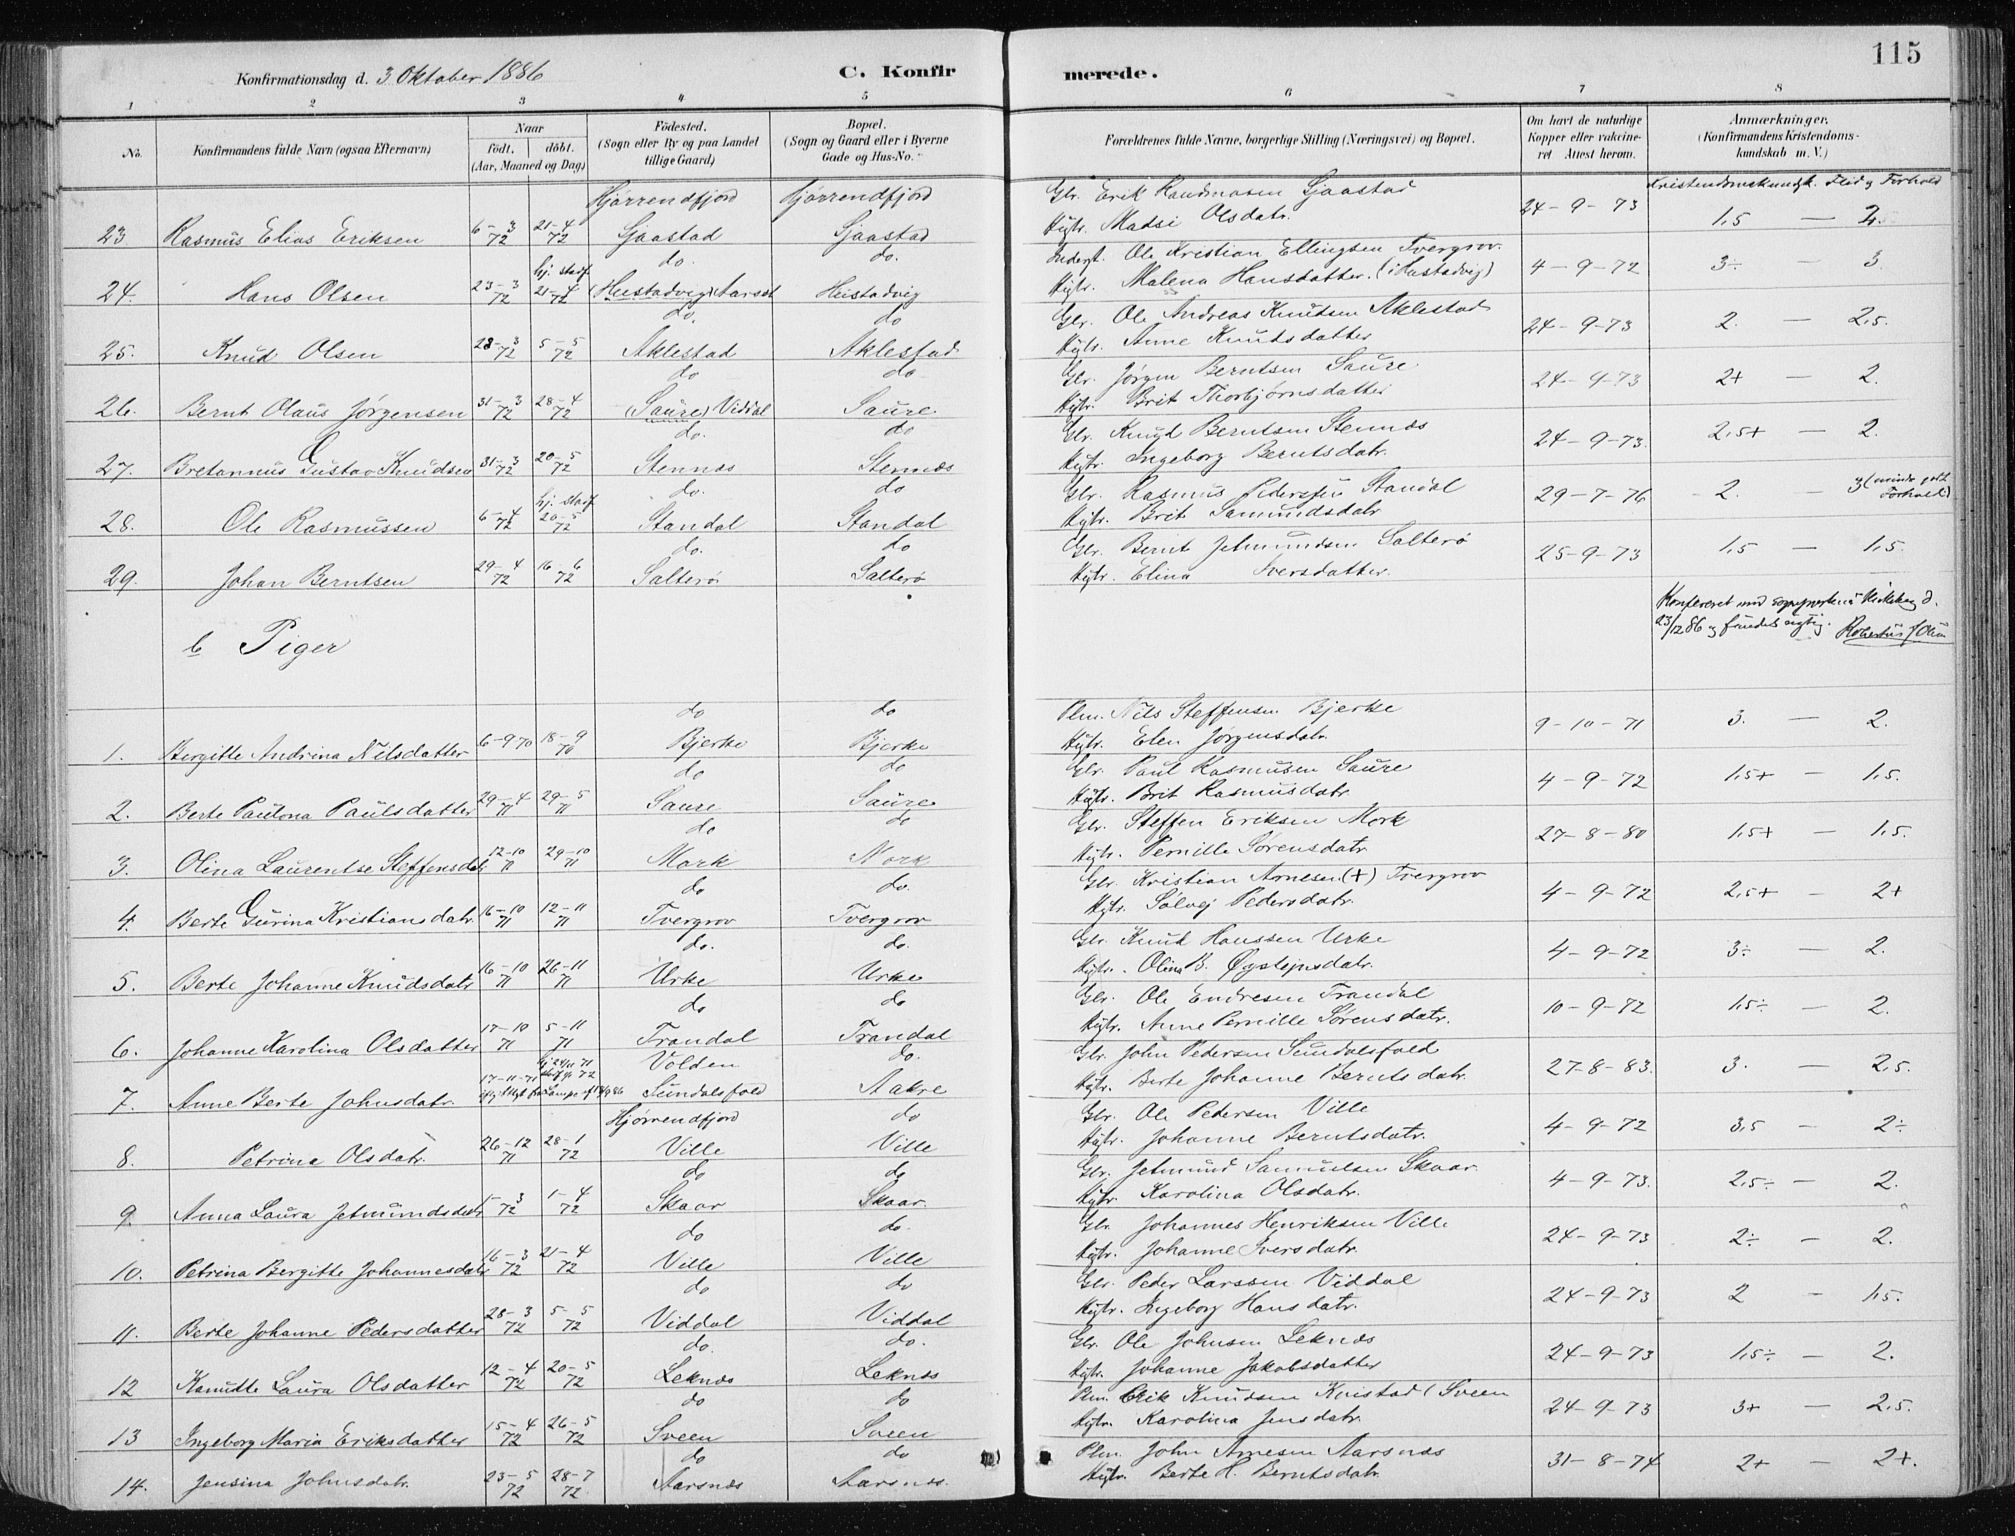 115
Konfirmationsdag d. 3 Oktober 1886
C. Konfir merede.
1 2 3 4 5 6 7 8
No. Konfirmandens fulde Navn (ogsaa Efternavn) Naar født. døbt. (Aar, Maaned og Dag) Fødested. (Sogn eller By og paa Landet tillige Gaard) Bopæl. (Sogn og Gaard eller i Byerne Gade og Hus-No. Forældrenes fulde Navne, borgerlige Stilling (Næringsvei) og Bopæl. Om havt de naturlige Kopper eller vaccineret Attest herom. Anmærkninger. (Konfirmandens Kristendomskundskab m. V.)
Hjørrendfjord Hjørrendfjord Gbr. Erik Rasmusen Sjaastad Kristendomskundsk. Flid og Forhold
23 Rasmus Elias Eriksen 6-3 72 21-4 72 Sjaastad Sjaastad Hustr. Madsi Olsdatr. 24-9-73 1,5 — 2.
hj. stadf. do. do. Inderst. Ole Kristian Ellingsen Tvergrov.
24. Hans Olsen 23-3 72 21-4 72 (Hustadvig) Aarset Hustadvig Hustr. Malena Hansdatter. (i Hustadvig) 4-9-72 3÷ — 3
do. do Gbr. Ole Andreas Knutsen Aklestad
25. Knud Olsen 28-3 72 5-5 72 Aklestad Aklestad Hustr. Anne Knutsdatter 24-9-73 2. — 2,5.
do do Gbr. Jørgen Berntsen Saure
26. Bernt Olaus Jørgensen 31-3 72 28-4 72 (Saure) Viddal Saure Hustr. Brit Thorbjørnsdatter 24-9-73 2+ — 2.
do. do Gbr. Knud Berntsen Stennæs
27. Bretannus Gustav Knudsen 31-3 72 20-5 72 Stennæs Stennæs Hustr. Ingeborg Berntsdatr. 24-9-73. 2,5+ — 2.
hj. stadf do. do Gbr. Rasmus Pedersen Standal
28. Ole Rasmussen 6-4 72 20-5 72 Standal Standal Hustr. Brit Samundsdatr 29-7-76 2. — 3 (mindre godt Forhold)
do. do Gbr. Bernt Jetmundsen Salterø
29. Johan Berntsen 29-4 72 16-6 72 Salterø Salterø Hustr. Elina Iversdatter. 25-9-73 1,5 — 1,5.
b Piger
Konfereret med Sogneprestens Kirkebog d. 23/12 86 og fundet rigtig.
do do Plm. Nils Steffensen Bjerke
1. Bergitte Andrina Nilsdatter 6-9 70 18-9 70 Bjerke Bjerke Hustr. Elen Jørgensdatr. 9-10-71 3. — 2.
do do Gbr. Paul Rasmusen Saure
2. Berte Paulona Paulsdatter 29-4 71 29-5 71 Saure Saure Hustr. Brit Rasmusdatr. 4-9-72 1,5+ — 1,5.
do do Gbr. Steffen Eriksen Mork
3. Olina Laurentse Steffensdatr 12-10 71 29-10 71 Mork Mork Hustr. Pernille Sørensdatr. 27-8-80 1,5+ — 1,5.
do do. Gbr. Kristian Arnesen (+) Tvergrov
4. Berte Gurina Kristiansdatr. 16-10 71 12-11 71 Tvergrov Tvergrov Hustr. Sølvej Pedersdatr. 4-9-72 2,5+ — 2+
do. do. Gbr. Knud Hanssen Urke
5. Berte Johanne Knudsdatr 16-10 71 26-11 71 Urke Urke Hustr. Olina B. Øystejnsdatr. 4-9-72 3÷ — 2.
do do Gbr. Ole Endresen Trandal
6. Johanne Karolina Olsdatter 17-10 71 5-11 71 Trandal Trandal Hustr. Anne Pernille Sørensdatr. 10-9-72 1,5÷ — 2.
Volden do. Gbr. John Pedersen Sundalsfold
7. Anne Berte Johnsdatr. 17-11-71 Sundalsfold Aakre Hustr. Berte Johanne Berntsdatr. 27-8-83. 3. — 2,5.
Hjørrendfjord do Gbr. Ole Pedersen Ville
8. Petrina Olsdatr. 26-12 71 28-1 72 Ville Ville Hustr. Johanne Berntsdatr. 4-9-72 3,5 — 2÷
do do Gbr. Jetmund Samuelsen Skaar
9. Anna Laura Jetmundsdatr 1-3 72 1-4 72 Skaar Skaar. Hustr. Karolina Olsdatr. 4-9-73. 2,5÷ — 2.
do do. Gbr. Johannes Henriksen Ville
10. Petrina Bergitte Johannesdatr 16-3 72 21-4 72 Ville Ville Hustr. Johanne Iversdatr. 24-9-73 2÷ — 2.
do do Gbr. Peder Larssen Viddal
11. Berte Johanne Pedersdatter 28-3 72 5-5 72 Viddal Viddal Hustr. Ingeborg Hansdatr. 24-9-73 2 — 1,5.
do. do. Gbr. Ole Johnsen Leknæs
12 Knudte Laura Olsdatter 12-4 72 20-5 72 Leknæs Leknæs Hustr. Johanne Jakobsdatter 24-9-73 1,5÷ — 2.
do do Plm. Erik Knudsen Kvistad (Sveen
13 Ingeborg Maria Eriksdatter 15-4 72 26-5 72 Sveen Sveen Hustr. Karolina Jensdatr. 24-9-73 3+ — 2,5.
do do Plm. John Arnesen Aarsnæs
14. Jensina Johnsdatr. 23-5 72 28-7 72 Aarsnæs Aarsnæs. Hustr. Berte H. Berntsdatr. 31-8-74 2+ — 2+.